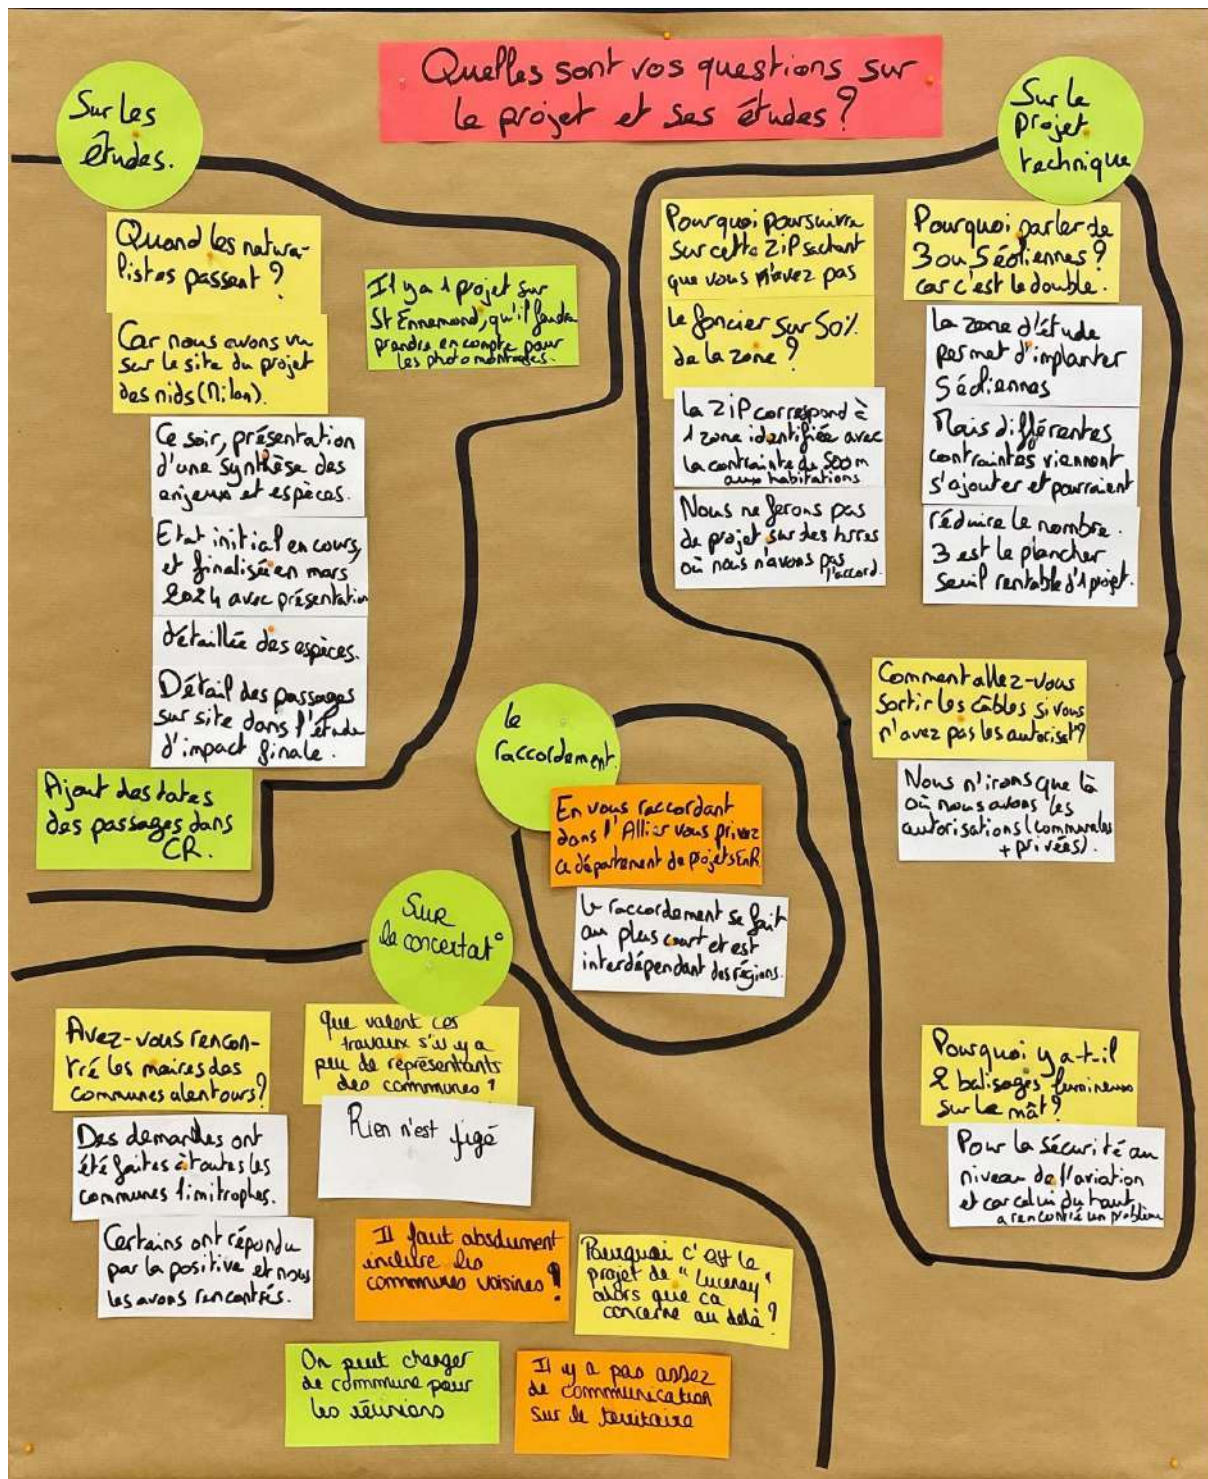 Quelles sont vos questions sur
le projet et ses études ?
Sur les
études.
Quand les natura-
listes passent ?
Car nous avons vu
sur le site du projet
des nids (Milan).
Ce soir, présentation
d'une synthèse des
enjeux et espèces.
Etat initial en cours,
et finalisée en mars
2024 avec présentation
détaillée des espèces.
Détail des passages
sur site dans l'étude
d'impact finale.
Ajout des dates
des passages dans
CR.
Il y a 1 projet sur
St Ennemond, qu'il faudra
prendre en compte pour
les photomontages.
Sur le
projet
technique
Pourquoi poursuivre
sur cette ZiP sachant
que vous n'avez pas
le foncier sur 50%
de la zone ?
La ZiP correspond à
1 zone identifiée avec
la contrainte de 500m
aux habitations
Nous ne ferons pas
de projet sur des terres
où nous n'avons pas
l'accord.
Pourquoi parler de
3 ou 5 éoliennes ?
car c'est le double.
La zone d'étude
permet d'implanter
5 éoliennes
Mais différentes
contraintes viennent
s'ajouter et pourraient
réduire le nombre.
3 est le plancher
seuil rentable d'1 projet.
Comment allez-vous
sortir les câbles si vous
n'avez pas les autorisat° ?
Nous n'irons que là
où nous avons les
autorisations (communales
+ privées).
Pourquoi y a-t-il
2 balisages lumineux
sur le mât ?
Pour la sécurité au
niveau de l'aviation
et car celui du haut
a rencontré un problème
le
raccordement.
En vous raccordant
dans l'Allier vous privez
ce département de projets EnR.
Le raccordement se fait
au plus court et est
interdépendant des régions.
SUR
la concertat°
Avez-vous rencon-
tré les maires des
communes alentours ?
Des demandes ont
été faites à toutes les
communes limitrophes.
Certains ont répondu
par la positive et nous
les avons rencontrés.
Que valent ces
travaux s'il y a
peu de représentants
des communes ?
Rien n'est figé
Il faut absolument
inclure les
communes voisines !
Pourquoi c'est le
projet de "Lucenay"
alors que ca
concerne au delà ?
On peut changer
de commune pour
les réunions
Il y a pas assez
de communication
sur le territoire